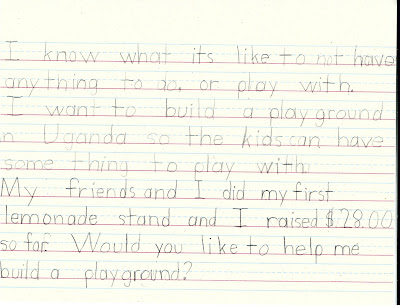 I know what its like to not have
anything to do. or play with.
I want to build a playground
n Uganda so the kids can have
some thing to play with.
My friends and I did my first
lemonade stand and I raised $28.00
so far. Would you like to help me
build a playground?